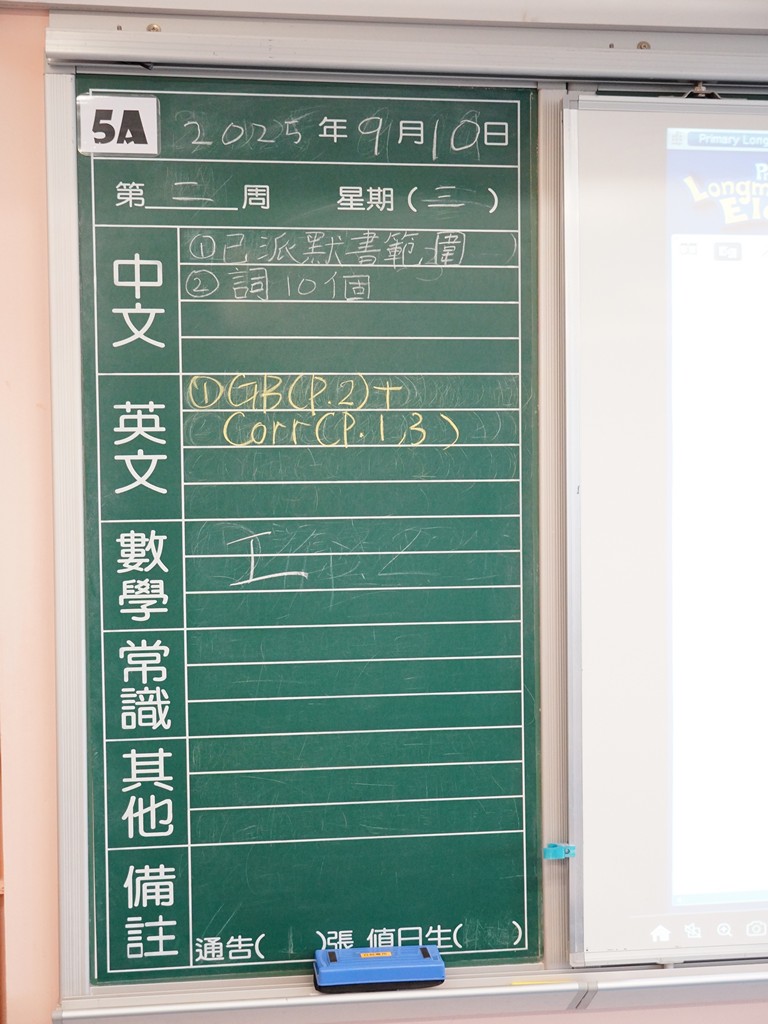 5A 2025年9月10日
第二周 星期(三)
中文
①已派默書範圍
②詞10個
英文
①GB(P.2)+
Corr(P.1,3)
數學
工
常識
其他
備註
通告( )張 值日生( )
Primary Long
Longm
Ele